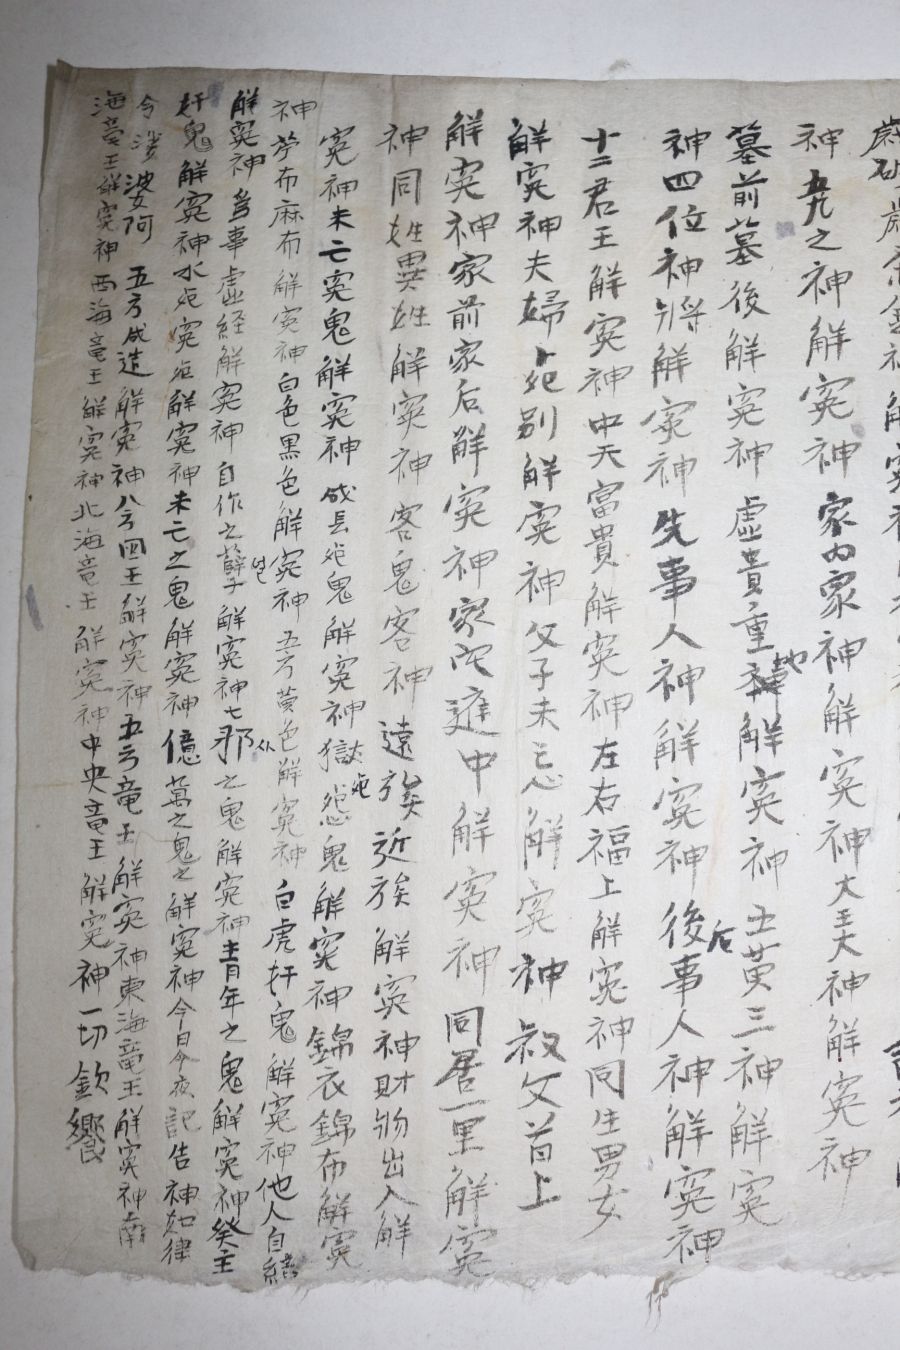 神五九之神解寃神家內家神解寃神大王大神解寃神
墓前墓後解寃神虛貴重地解寃神五黃三神解寃
神四位神將解寃神先事人神解寃神後后事人神解寃神
十二君王解寃神中天富貴解寃神左右福上解寃神同生男女
解寃神夫婦卜死別解寃神父子未忘解寃神叔父首上
解寃神家前家后解寃神家內庭中解寃神同居一里解寃
神同姓異姓解寃神客鬼客神遠族近族解寃神財物出入解
寃神未亡寃鬼解寃神戌長死鬼解寃神獄死怨鬼解寃神錦衣錦布解寃
神苧布麻布解寃神白色黑色解寃神五方黃色解寃神白虎奸鬼解寃神他人自縊
解寃神多事虛經解寃神自作之孼解寃神七邪之鬼解寃神靑年之鬼解寃神癸主
奸鬼解寃神水死寃死解寃神未亡之鬼解寃神億萬之鬼之解寃神今日今夜記告神如律
令 婆阿 五方成造解寃神八方四王解寃神五方竜王解寃神東海竜王解寃神南
海竜王解寃神西海竜王解寃神北海竜王解寃神中央竜王解寃神一切欽饗